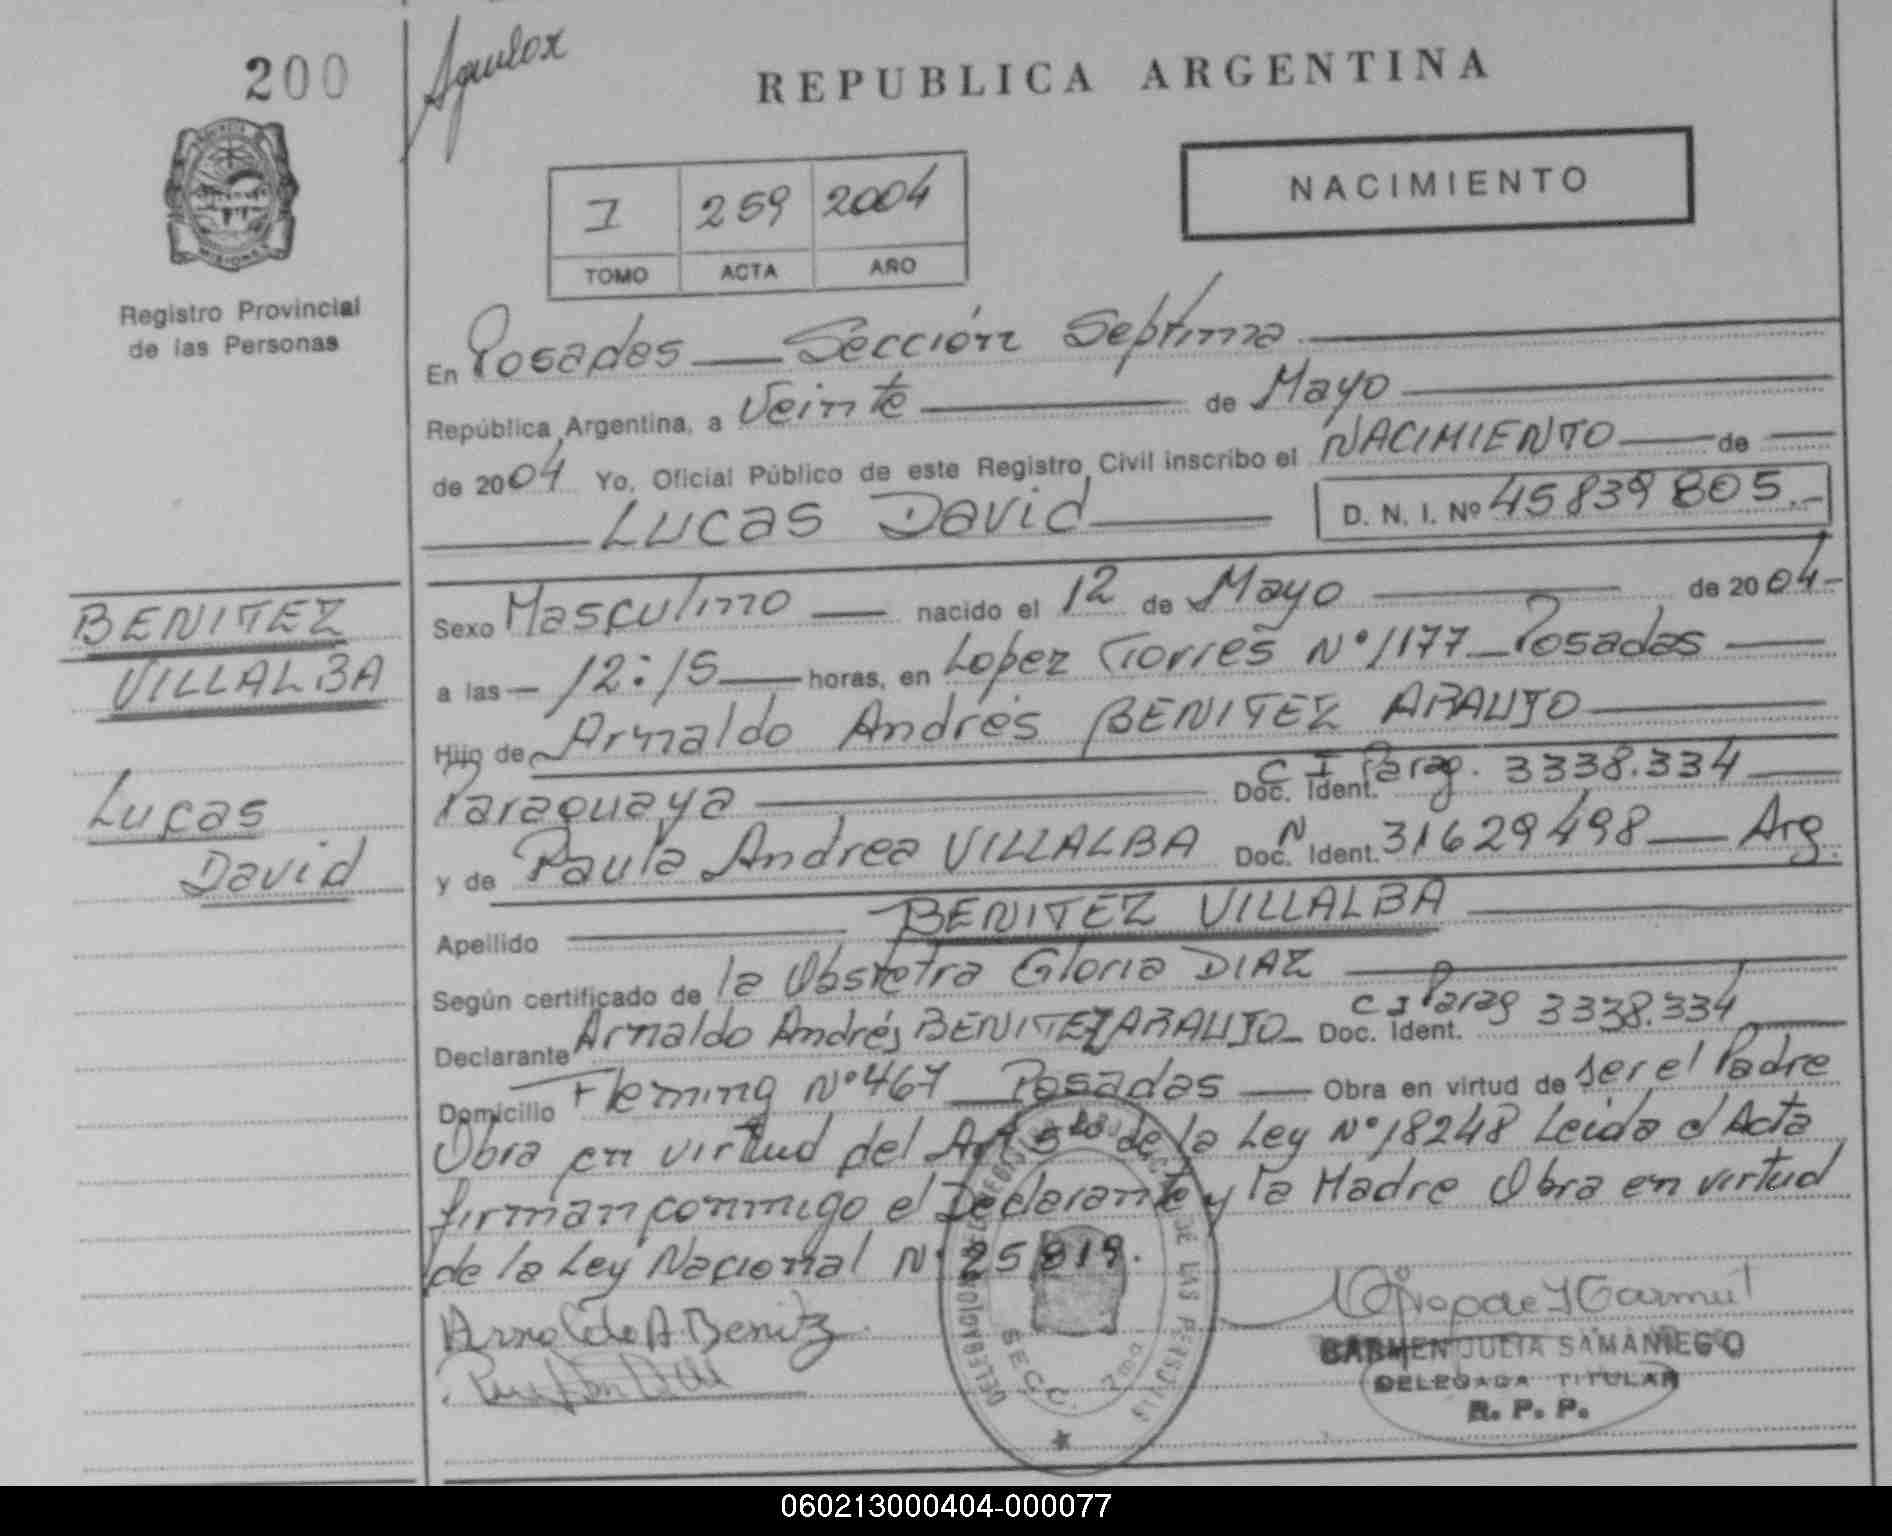 200
Aguilox
REPUBLICA ARGENTINA
NACIMIENTO
I 259 2004
TOMO ACTA AÑO
Registro Provincial
de las Personas
En Posadas Sección Septima
República Argentina, a Veinte de Mayo
de 2004 Yo, Oficial Público de este Registro Civil inscribo el NACIMIENTO de
Lucas David D. N. I. Nº 45839805.-
BENITEZ
VILLALBA
Lucas
David
Sexo Masculino nacido el 12 de Mayo de 2004-
a las 12:15 horas, en Lopez Torres Nº 1177 Posadas
Hijo de Arnaldo Andrés BENITEZ ARAUJO
Paraguaya Doc. Ident. C I Parag. 3338.334
y de Paula Andrea VILLALBA Doc. N Ident. 31629498 Arg.
Apellido BENITEZ VILLALBA
Según certificado de la Obstetra Gloria DIAZ
Declarante Arnaldo Andrés BENITEZ ARAUJO Doc. Ident. C I Parag 3338.334
Domicilio Fleming Nº 467 Posadas Obra en virtud de ser el Padre
Obra en virtud del Art 5to de la Ley Nº 18248 Leida el Acta
firman conmigo el Declarante y la Madre Obra en virtud
de la Ley Nacional Nº 25819.
Arnaldo A. Benitez
SECC. 7ma
DE LAS PERSONAS
CARMEN JULIA SAMANIEGO
DELEGADA TITULAR
R. P. P.
060213000404-000077